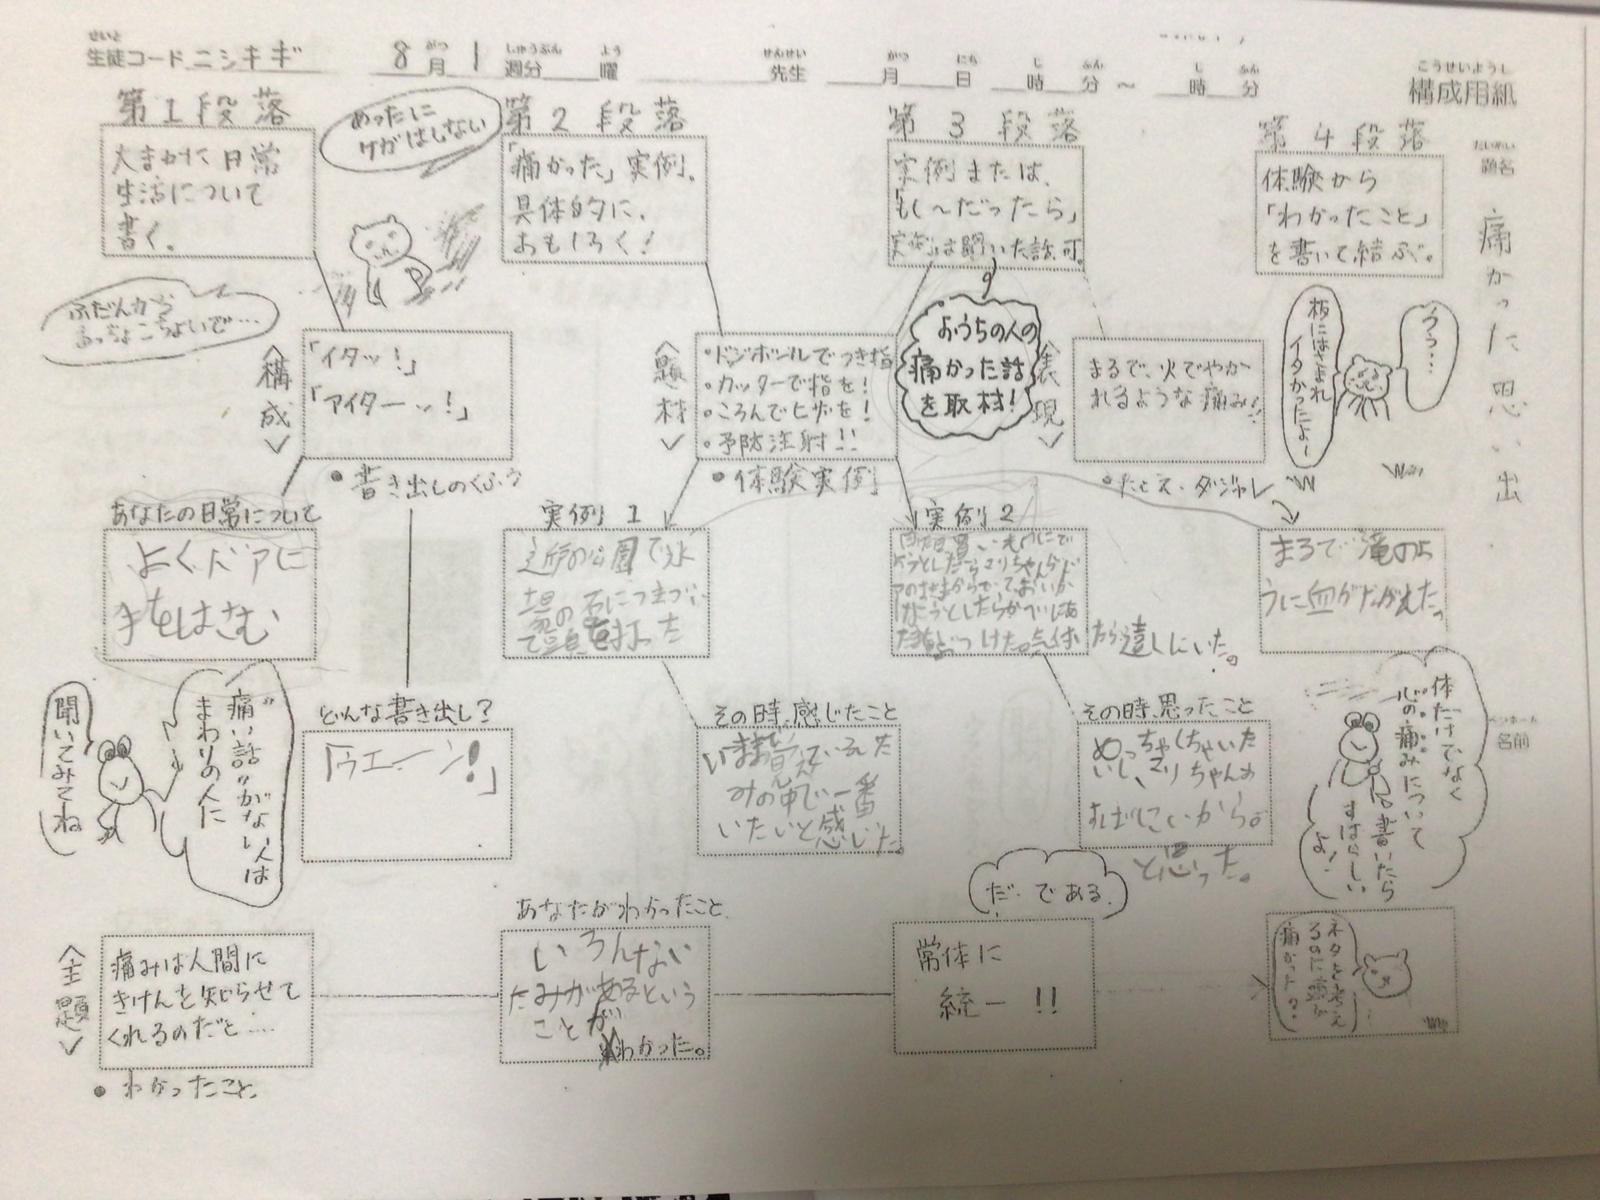 せいと
生徒コード ニシキギ
8月 1週分 曜
先生
月 日 時 分 ～ 時 分
こうせいようし
構成用紙
だいめい
題名
痛かった思い出
第1段落
大まかに日常
生活について
書く。
めったに
ケガはしない
第2段落
「痛かった」実例。
具体的に、
おもしろく！
第3段落
実例または、
「もし～だったら」
実例は聞いた話可。
第4段落
体験から
「わかったこと」
を書いて結ぶ。
ふだんから
おっちょこちょいで…
＜構成＞
「イタッ！」
「アイターッ！」
●書き出しのくふう
＜題材＞
・ドッジボールでつき指
・カッターで指を！
・ころんでヒザを！
・予防注射！！
●体験実例
おうちの人の
痛かった話
を取材！
＜表現＞
まるで、火でやか
れるような痛み！！
●たとえ・ダジャレ
板にはさまれ
イタかったよ～
うぅ…
あなたの日常について
よくドアに
手をはさむ
実例1
近所の公園で水
場の石につまづい
て頭を打った
実例2
たら遠しにいた。
まるで滝のよ
うに血がながれた。
聞いてみてね
"痛い話"がない人は
まわりの人に
どんな書き出し？
「ウエーン！」
その時、感じたこと
いままで覚えているいた
みの中で一番
いたいと感じた。
その時、思ったこと
めっちゃくちゃいた
いし、マリちゃんの
すばしこいから。
と思った。
体だけでなく
心の痛みについて
書いたら
すばらしい
よ！
ペンネーム
名前
＜主題＞
痛みは人間に
きけんを知らせて
くれるのだと…
●わかったこと
あなたがわかったこと
いろんない
たみがあるという
ことが
わかった。
だ・である
常体に
統一！！
ネタを考え
るのに頭が
痛かった？